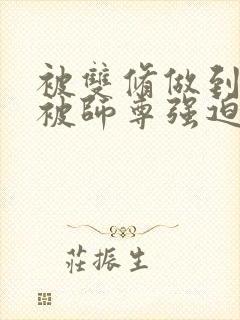 被雙脩做到
被師尊强迫
莊振生